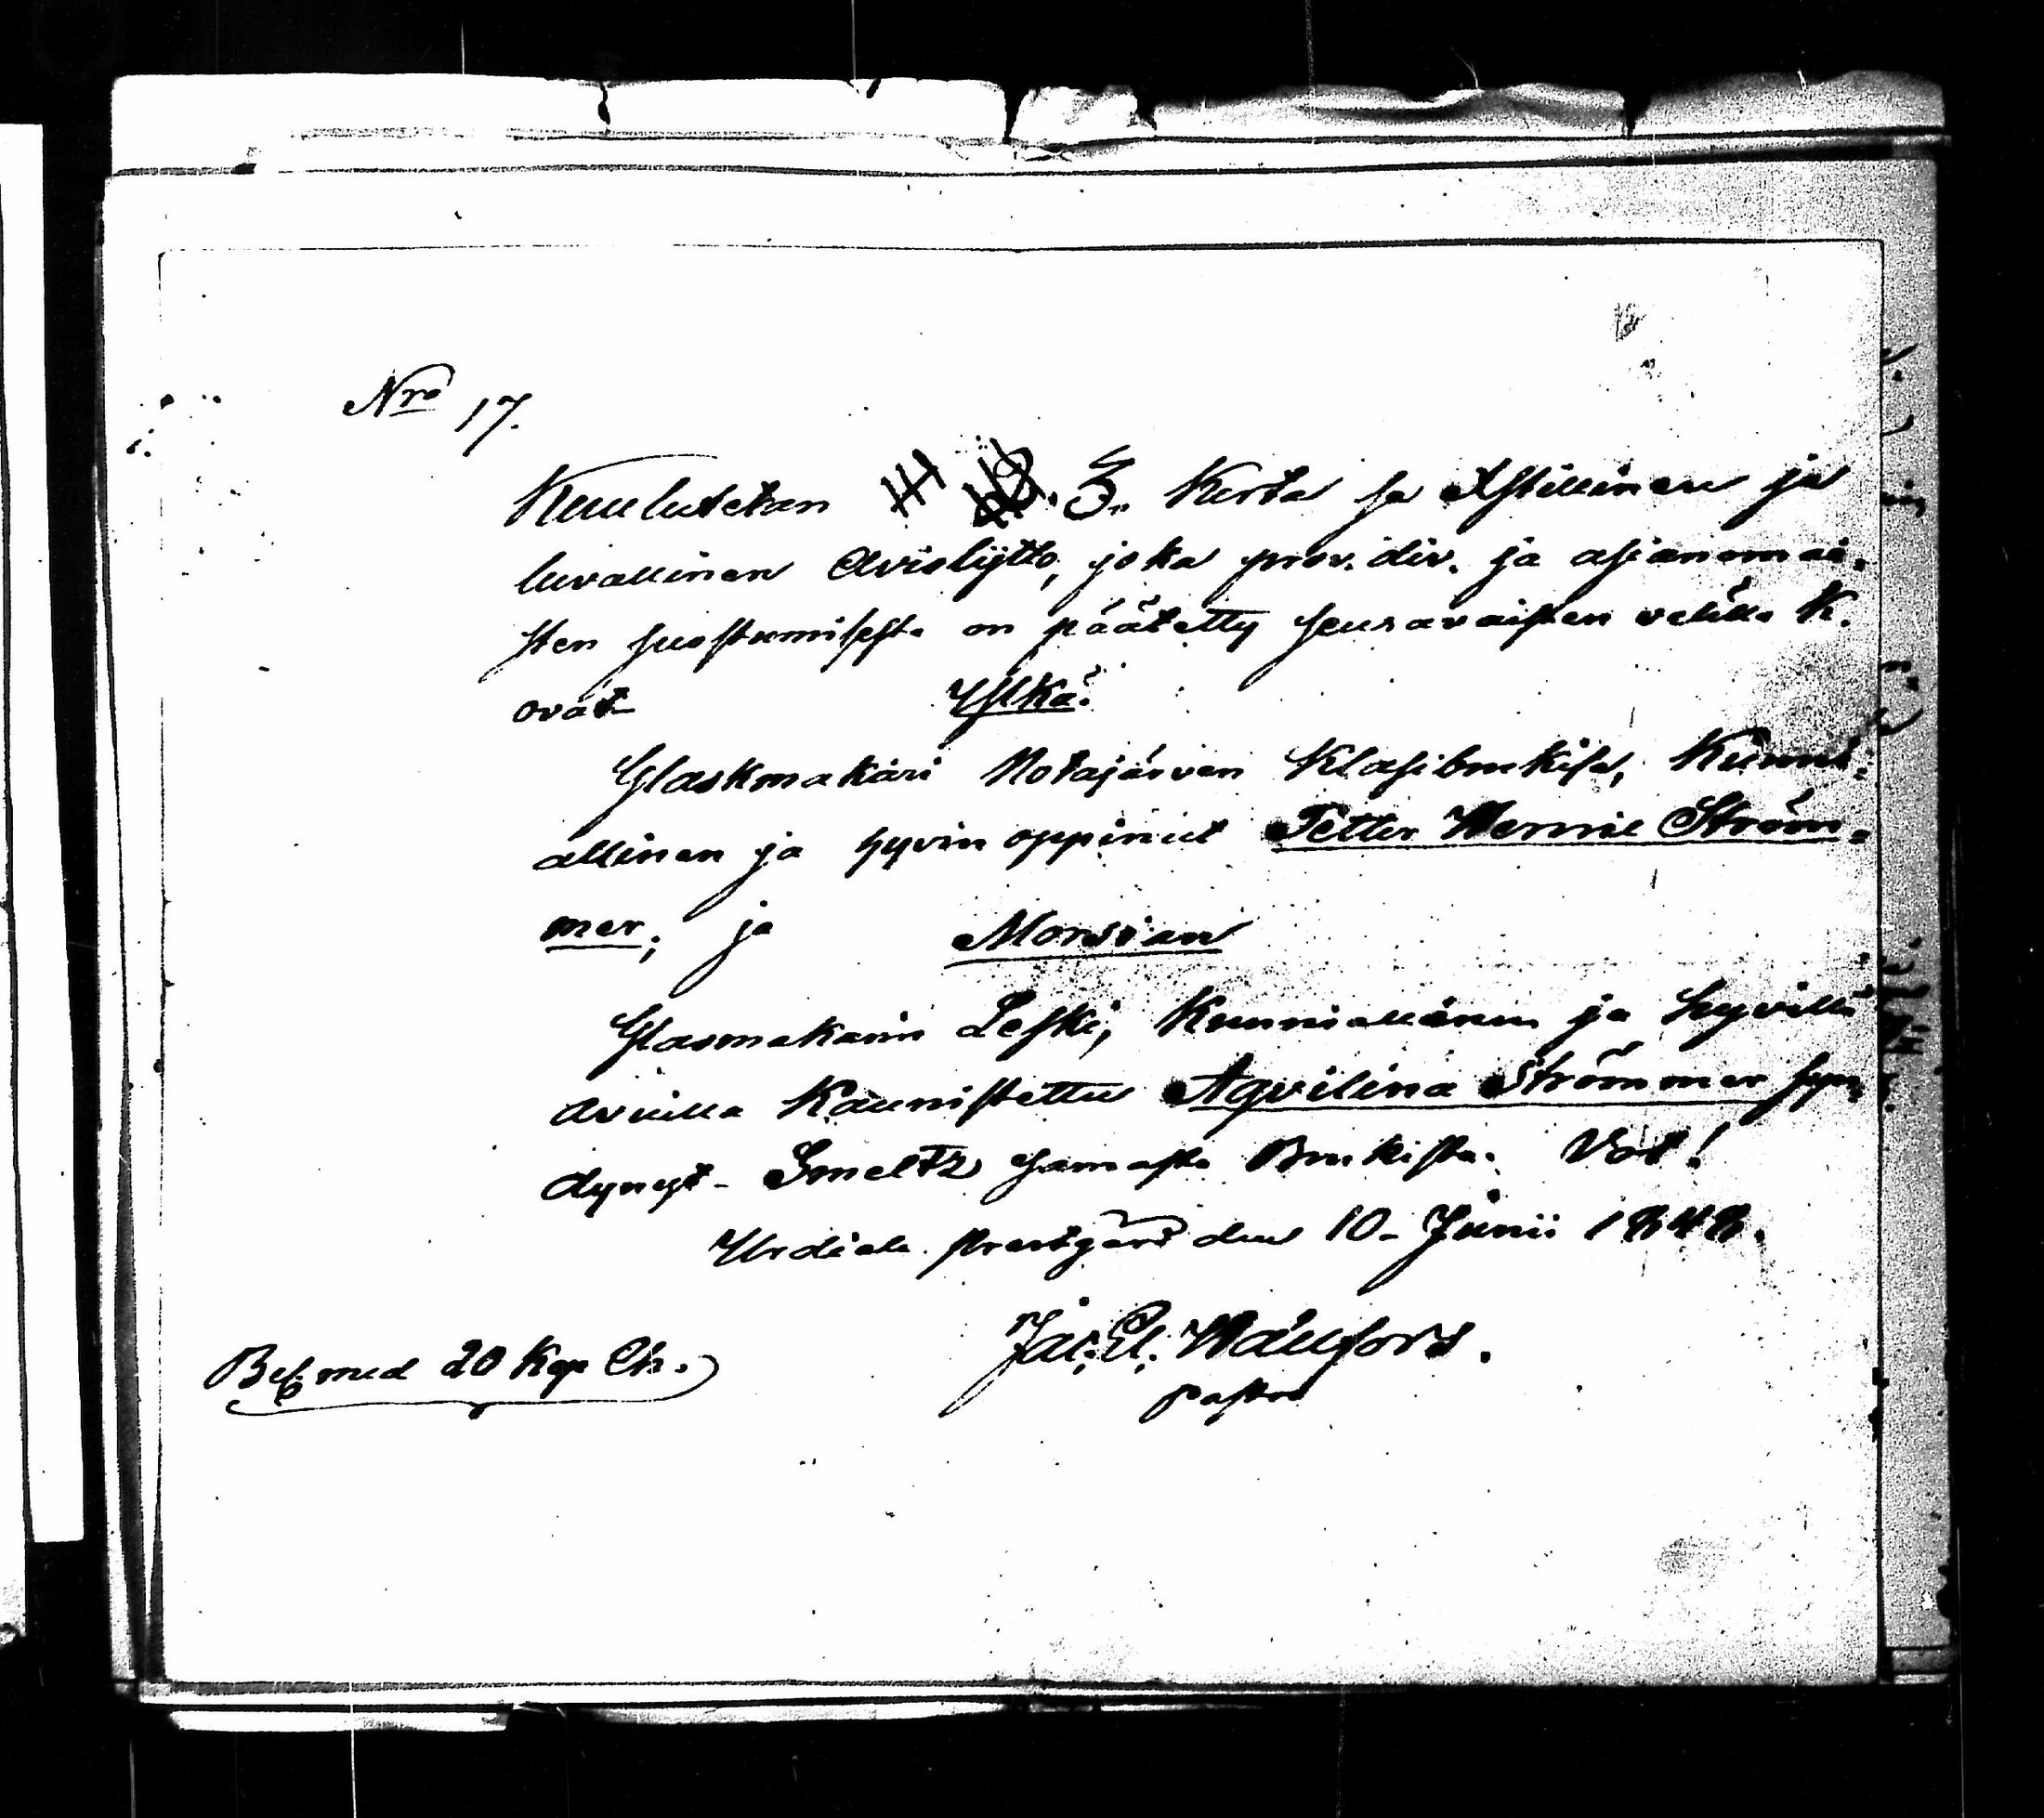 Nro 17.
Kuulutetan 3. Kerta se Xstillinen ja
luvallinen Avioliytto, joka prov. div. ja asianomai-
sten suostumisesta on päätetty seuravaisten välillä K.
ovat Ylkä.
Glaskmakari Notajärven Klasibrukisa, Kunni-
allinen ja hyvin oppinut Petter Wernie Ström-
mer; ja Morsian
Glasmakarin Leski, Kunniallinen ja hyvillä
avuilla Kaunistettu Aqvilina Strömmer syn-
dynyt Smeltz samasta Brukista. Vot!
Urdiala prestgård den 10. Junii 1848.
Jac. El. Wallfors.
pastor
Bef. med 20 Kop. Ch.